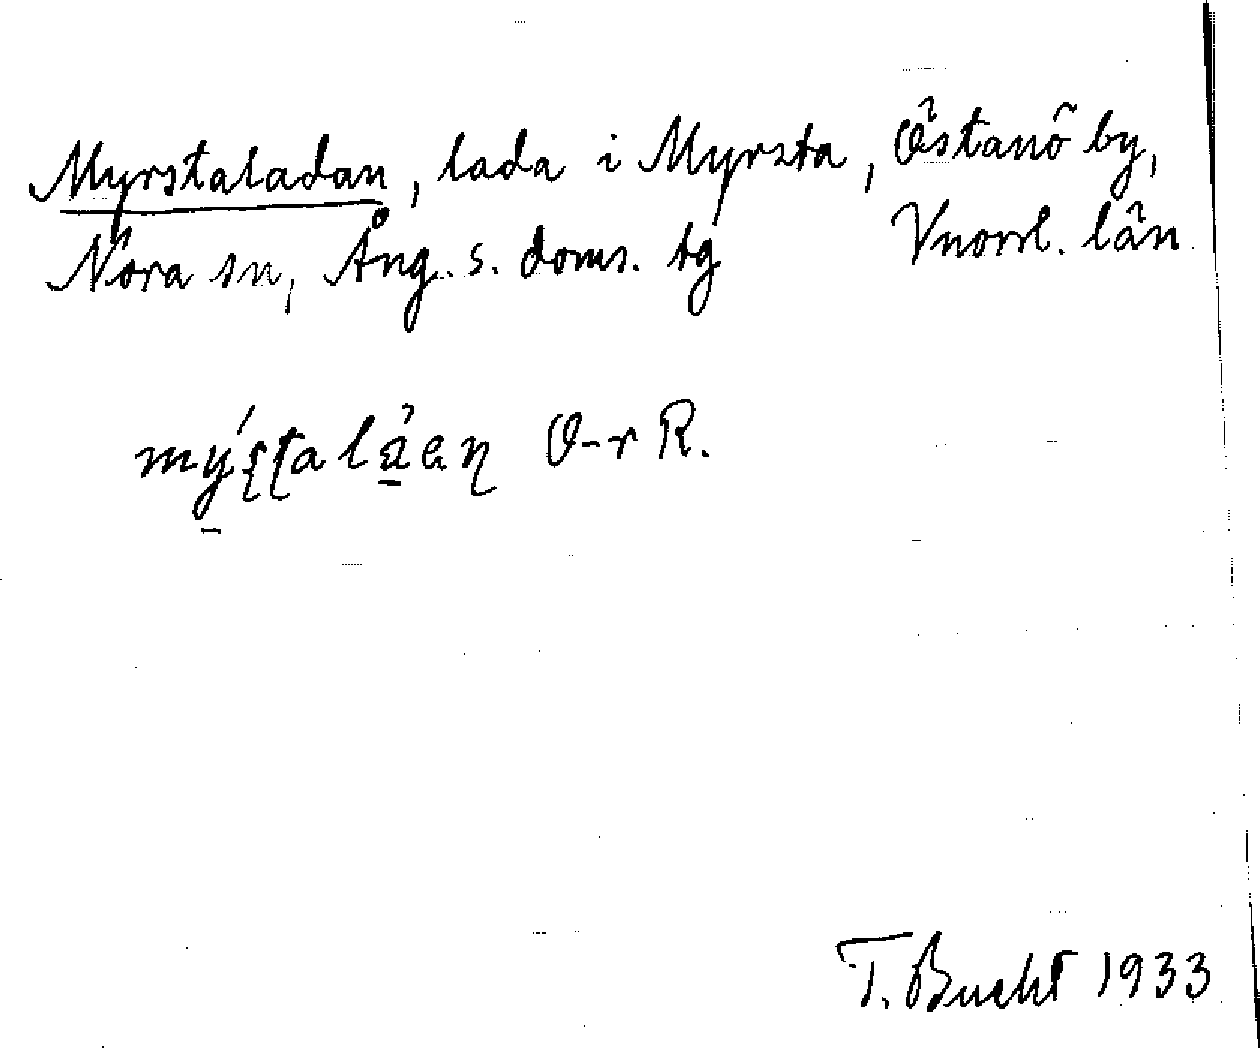 Myrstaladan, lada i Myrsta, Östanö by,
Nora sn, Ång. s. doms. tg Vnorrl. län
O-r R.
T. Bucht 1933